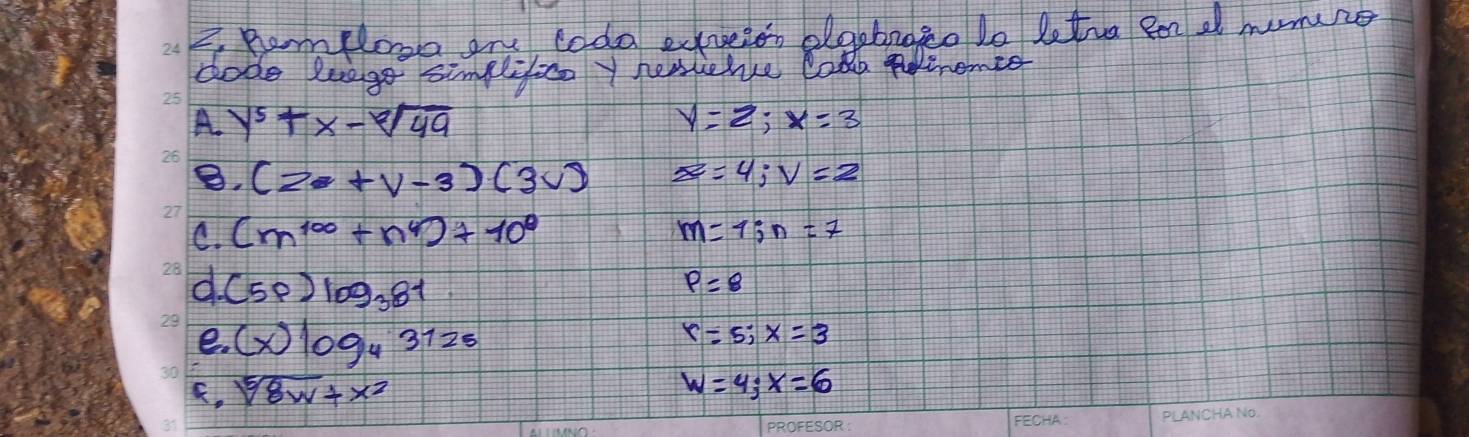 24 2. Remplaza en cada expresión algebraica la letra por el numero
dado luego simplifica y resuelve cada polinomio
25
A. y⁵ + x - ²√49 y = 2; x = 3
26
B. (z + v - 3) (3v) z = 4; v = 2
27
C. (m¹⁰⁰ + n⁴) + 10⁰ m = 1; n = 7
28
d. (5p) log₃ 81 p = 8
29
e. (x) log₄ 3125 r = 5; x = 3
30
f. ⁵√8w + x² w = 4; x = 6
31 ALUMNO: PROFESOR: FECHA: PLANCHA No.